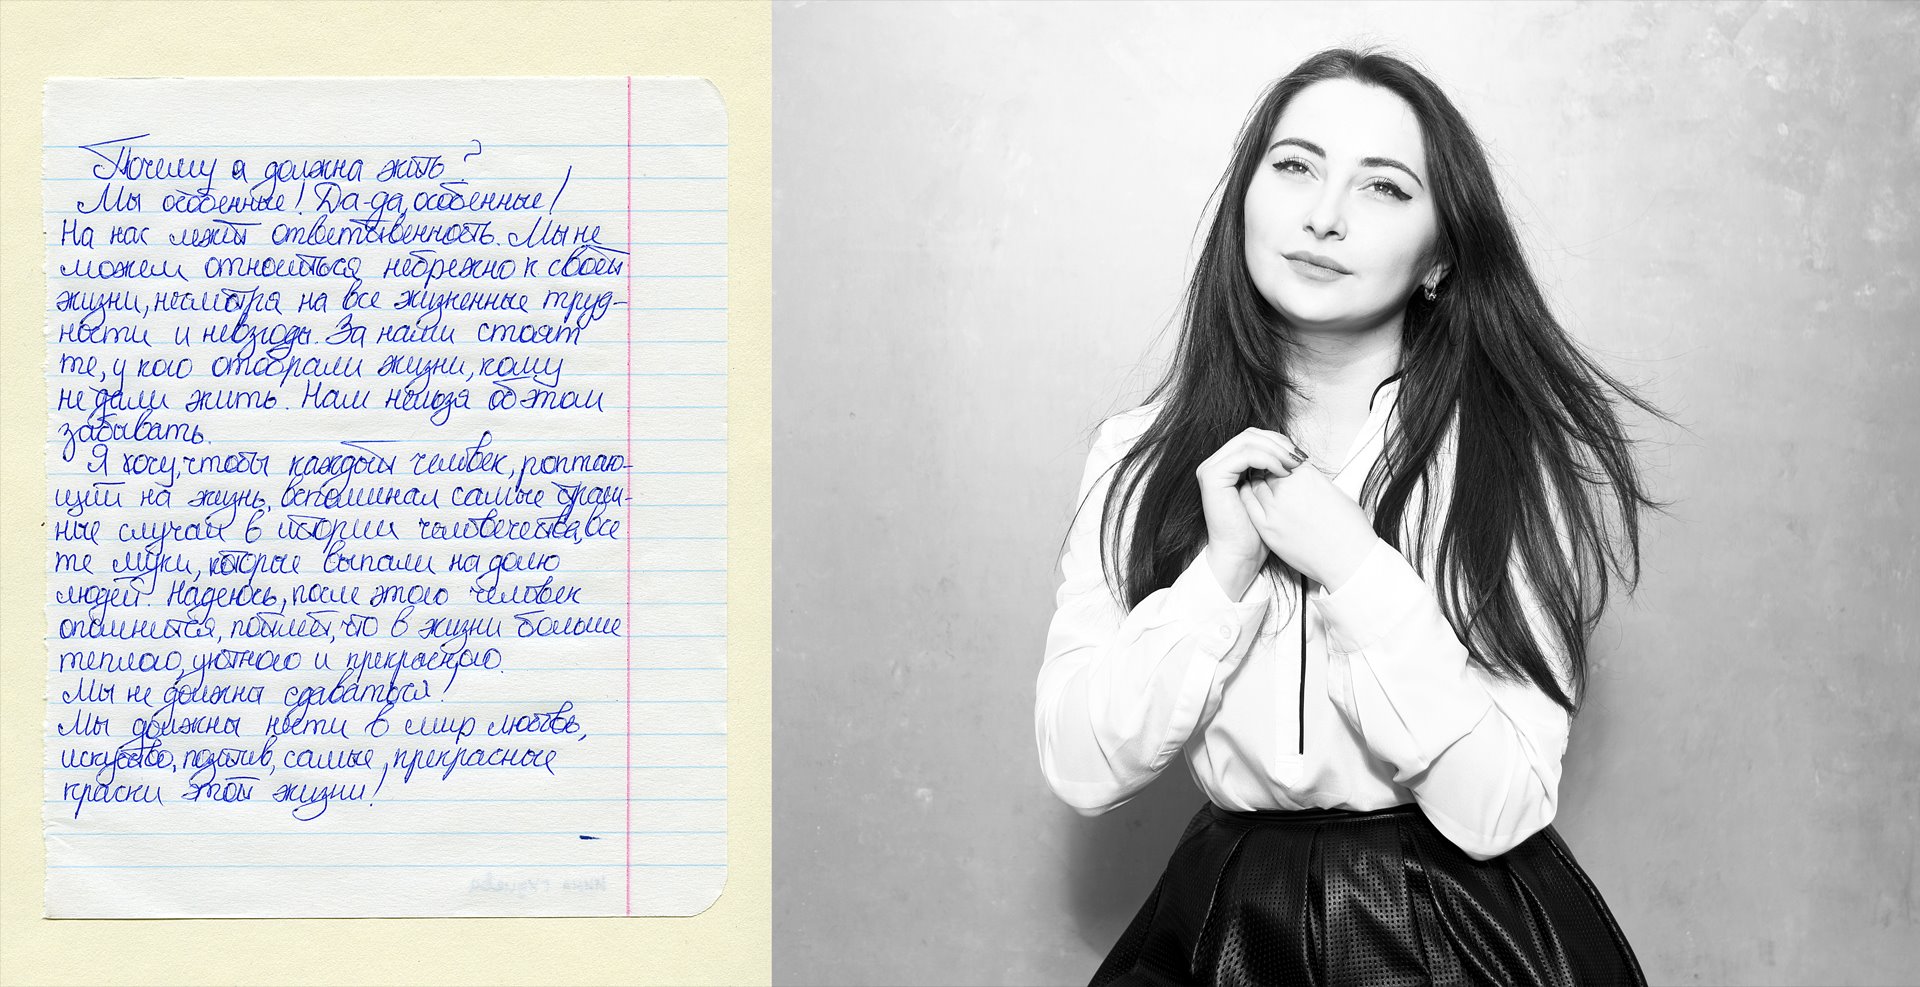 Почему я должна жить?
Мы особенные! Да-да, особенные!
На нас лежит ответственность. Мы не
можем относиться небрежно к своей
жизни, несмотря на все жизненные труд-
ности и невзгоды. За нами стоят
те, у кого отобрали жизни, кому
не дали жить. Нам нельзя об этом
забывать.
Я хочу, чтобы каждый человек, ропта-
щий на жизнь, вспоминал самые страш-
ные случаи в истории человечества, все
те муки, которые выпали на долю
людей. Надеюсь, после этого человек
опомнится, поймет, что в жизни больше
теплого, уютного и прекрасного.
Мы не должны сдаваться!
Мы должны нести в мир любовь,
искусство, позитив, самые прекрасные
краски этой жизни!